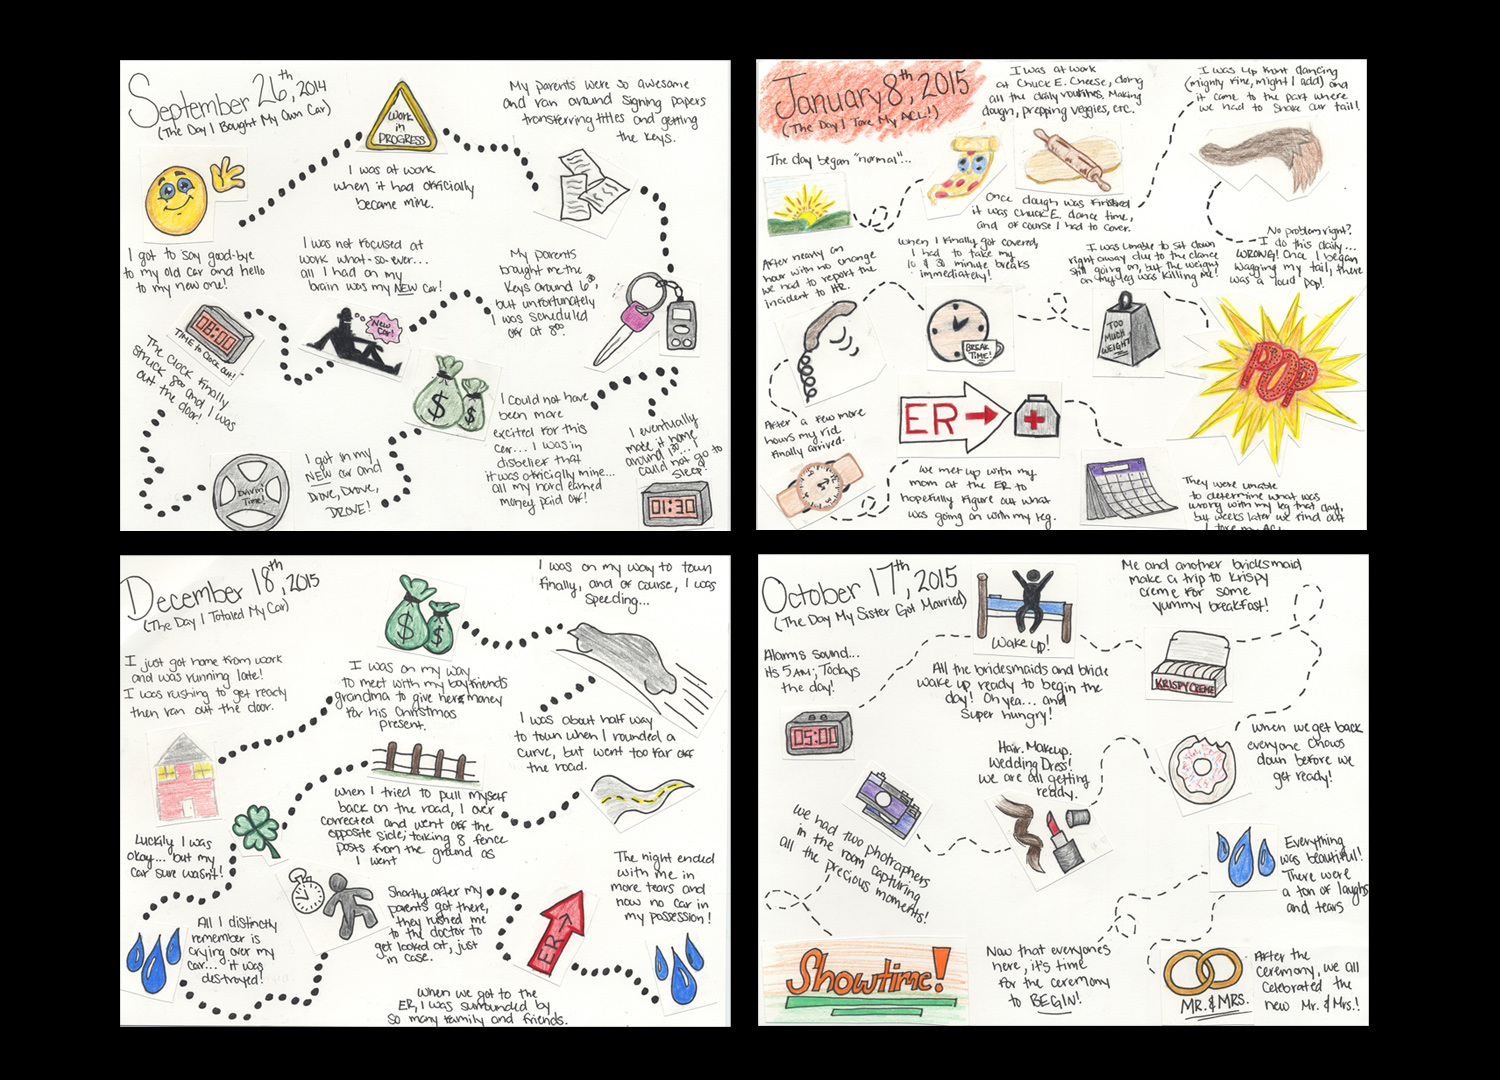 September 26th, 2014
(The Day I Bought My Own Car)
WORK
IN
PROGRESS
I was at work
when it had officially
became mine.
My parents were so awesome
and ran around signing papers
transferring titles and getting
the keys.
My parents
brought me the
keys around 6:30,
but unfortunately
I was scheduled
off at 8:00.
I could not have
been more
excited for this
car... I was in
disbelief that
it was officially mine...
all my hard earned
money paid off!
I was not focused at
work what-so-ever...
all I had on my
brain was my NEW car!
New
Car!
$ $
I got to say good-bye
to my old car and hello
to my new one!
08:00
TIME TO CLOCK OUT!
The clock finally
struck 8:00 and I was
out the door!
Drivin'
Time!
I got in my
NEW car and
Drove, Drove,
DROVE!
I eventually
made it home
around 1:30... I
could not go to
sleep!
01:30
January 8th, 2015
(The Day I Tore My ACL!)
The day began "normal"...
I was at work
at Chuck E. Cheese, doing
all the daily routines. Making
dough, prepping veggies, etc.
Once dough was finished
it was Chuck E. dance time,
and of course I had to cover.
I was up front dancing
(mighty fine, might I add) and
it came to the part where
we had to shake our tail!
No problem right?
I do this daily...
WRONG! Once I began
wagging my tail, there
was a loud pop!
POP
I was unable to sit down
right away due to the dance
still going on, but the weight
on my leg was killing me!
TOO
MUCH
WEIGHT!
When I finally got covered,
I had to take my
10 & 30 minute breaks
immediately!
BREAK
TIME!
After nearly an
hour with no change
we had to report the
incident to HR.
After a few more
hours my rid
finally arrived.
ER
We met up with my
mom at the ER to
hopefully figure out what
was going on with my leg.
They were unable
to determine what was
wrong with my leg that day,
but weeks later we find out
I tore my ACL
December 18th, 2015
(The Day I Totaled My Car)
I just got home from work
and was running late!
I was rushing to get ready
then ran out the door.
$ $
I was on my way
to meet with my boyfriends
grandma to give her $ money
for his Christmas
present.
I was on my way to town
finally, and of course, I was
speeding...
I was about half way
to town when I rounded a
curve, but went too far off
the road.
When I tried to pull myself
back on the road, I over
corrected and went off the
opposite side; taking 8 fence
posts from the ground as
I went
Luckily I was
okay... but my
car sure wasn't!
All I distinctly
remember is
crying over my
car... it was
destroyed!
Shortly after my
parents got there,
they rushed me
to the doctor to
get looked at, just
in case.
ER
When we got to the
ER, I was surrounded by
so many family and friends.
The night ended
with me in
more tears and
now no car in
my possession!
October 17th, 2015
(The Day My Sister Got Married)
Alarms sound...
its 5 AM; Todays
the day!
05:00
Wake up!
All the bridesmaids and bride
wake up ready to begin the
day! Oh yea... and
super hungry!
Me and another bridesmaid
make a trip to Krispy
creme for some
yummy breakfast!
KRISPY CREME
When we get back
everyone chows
down before we
get ready!
Hair. Makeup.
Wedding Dress!
We are all getting
ready.
We had two photraphers
in the room capturing
all the precious moments!
Showtime!
Now that everyones
here, it's time
for the ceremony
to BEGIN!
Everything
was beautiful!
There were
a ton of laughs
and tears
MR. & MRS.
After the
ceremony, we all
celebrated the
new Mr. & Mrs.!